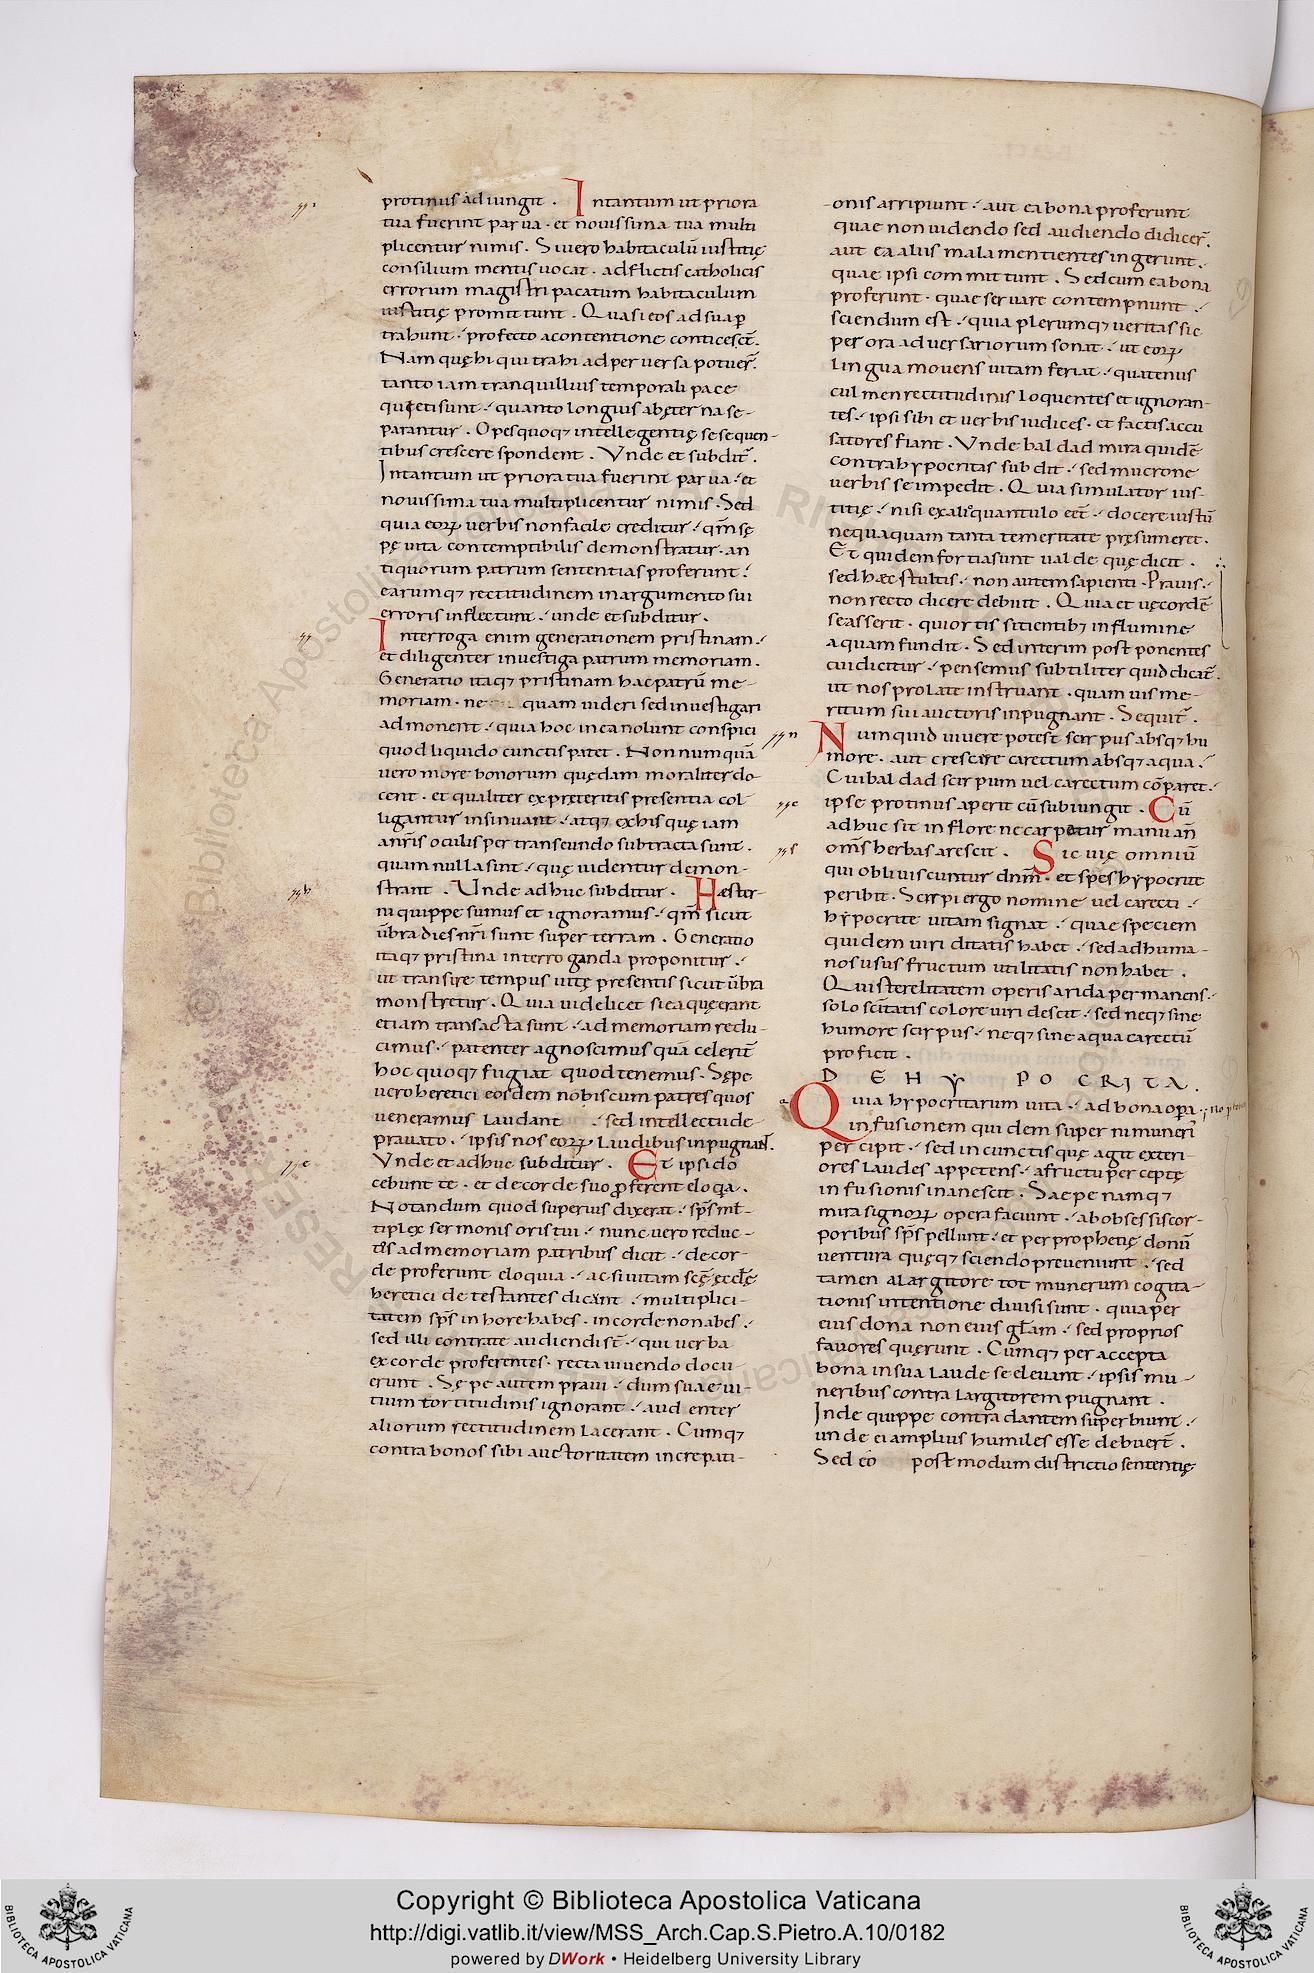 protinus adiungit . Intantum ut priora
tua fuerint parua · et nouissima tua multi
plicentur nimis . Si uero habitaculū iustitię
consilium mentis uocat · adflictis catholicis
errorum magistri pacatum habitaculum
iustitię promittunt . Quasi eos ad sua ꝑ
trahunt · profecto a contentione conticesct̄.
Nam quę hi qui trahi ad peruersa potuer̄.
tanto iam tranquillius temporali pace
quieti sunt ·' quanto longius ab ęterna se-
parantur . Opes quoq; intellegentię se sequen-
tibus crescere spondent . Vnde et subdit̄ .
Intantum ut priora tua fuerint parua ·' et
nouissima tua multiplicentur nimis · Sed
quia eoꝝ uerbis non facile creditur ·' qm̄ sę
pę uita contemptibilis demonstratur · an
tiquorum patrum sententias proferunt ·'
earumq; rectitudinem in argumento sui
erroris inflectunt ·' unde et subditur .
Interroga enim generationem pristinam ·'
et diligenter inuestiga patrum memoriam .
Generatio itaq; pristinam hac patrū me-
moriam · ne quam uideri sed inuestigari
admonent ·' quia hoc in ea nolunt conspici
quod liquido cunctis patet . Non numquā
uero more bonorum quędam moraliter do-
cent · et qualiter ex pręteritis presentia col
ligantur insinuant ·' atq; ex his quę iam
an nr̄is oculis per transeundo subtracta sunt .
quam nulla sint ·' quę uidentur demon-
strant . Unde adhuc subditur . Hęster-
ni quippe sumus et ignoramus ·' qm̄ sicut
ūbra dies nr̄i sunt super terram . Generatio
itaq; pristina interroganda proponitur ·'
ut transire tempus uitę presentis sicut ūbra
monstretur . Quia uidelicet si ea quę erant
etiam transacta sunt ·' ad memoriam redu-
cimus ·' patenter agnoscimus quā celerit̄
hoc quoq; fugiat quod tenemus . Sępe
uero heretici eosdem nobiscum patres quos
ueneramus laudant ·' sed intellectu de-
prauato ·' ipsis nos eoꝝ laudibus inpugnant.
Vnde et adhuc subditur . Et ipsi do
cebunt te · et de corde suo ꝓferent eloqa .
Notandum quod superius dixerat ·' sp̄s ml̄-
tiplex sermonis oris tui ·' nunc uero reduc-
tis ad memoriam patribus dicit ·' de cor-
de proferent eloquia ·' ac si uitam scę̄ ęccl̄ę
heretici detestantes dicant ·' multiplici-
tatem sp̄s in hore habes · in corde non abes ·'
sed illi contra te audiendi st̄ ·' qui uerba
ex corde proferentes · recta uiuendo docu
erunt . Sępe autem praui ·' dum suae ui-
tium tortitudinis ignorant ·' audenter
aliorum rectitudinem lacerant . Cumq;
contra bonos sibi auctoritatem increpati-
onis arripiunt ·' aut ea bona proferunt
quae non uidendo sed audiendo didicer̄.
aut ea aliis mala mentientes ingerunt ·'
quae ipsi committunt . Sed cum ea bona
proferunt · quae seruare contempnunt ·'
sciendum est ·' quia plerumq; ueritas sic
per ora aduersariorum sonat ·' ut eoꝝ
lingua mouens uitam feriat ·' quatenus
culmen rectitudinis loquentes et ignoran-
tes ·' ipsi sibi et uerbis iudices · et factis accu
satores fiant . Vnde baldad mira quidē
contra hypocritas subdit ·' sed mucrone
uerbi se impedit . Quia simulator ius-
titię ·' nisi ex aliquantulo eēt ·' docere iustū
nequaquam tanta temeritate pręsumeret .
Et quidem fortia sunt ualde quę dicit .
sed hæc stultis ·' non autem sapienti · Prauis ·'
non recto dicere debuit . Quia et uęcordē
se asserit · qui ortis sitientib; in flumine
aquam fundit . Sed interim postponentes
cui dicitur ·' pensemus subtiliter quid dicat̄ .
ut nos prolate instruant · quamuis me-
ritum sui auctoris inpugnant . Sequit̄ .
Numquid uiuere potest scirpus absq; hu
more · aut crescere carectum absq; aqua ·'
Cui baldad scirpum uel carectum cōparet ·'
ipse protinus aperit cū subiungit . Cū
adhuc sit in flore nec carpatur manu an̄
om̄s herbas arescit . Sic uię omniū
qui obliuiscuntur dn̄m · et spes hypocritę
peribit . Scirpi ergo nomine uel carecti ·'
hypocrite uitam signat ·' quae speciem
quidem uiriditatis habet ·' sed ad huma-
nos usus fructum utilitatis non habet .
Qui sterelitatem operis arida permanens ·'
solo scītatis colore uiridescit ·' sed neq; sine
humore scirpus ·' neq; sine aqua carectū
proficit .
DE HYPOCRITA .
Quia hypocritarum uita ·' ad bona opa ·'
infusionem quidem superni muneri
percipit ·' sed in cunctis quę agit exteri-
ores laudes appetens ·' a fructu perceptę
infusionis inanescit . Saepe namq;
mira signoꝝ opera faciunt ·' ab obsessis cor-
poribus sp̄s pellunt ·' et per prophetię donū
uentura quęq; sciendo preueniunt ·' sed
tamen a largitore tot munerum cogita-
tionis intentione diuisi sunt · quia per
eius dona non eius gl̄am ·' sed proprios
fauores quęrunt . Cumq; per accepta
bona in sua laude se eleuant ·' ipsis mu-
neribus contra largitorem pugnant .
Inde quippe contra dantem superbiunt ·'
unde ei amplius humiles esse debuert̄ .
Sed eō postmodum districtio sententię
Copyright © Biblioteca Apostolica Vaticana
http://digi.vatlib.it/view/MSS_Arch.Cap.S.Pietro.A.10/0182
powered by DWork • Heidelberg University Library